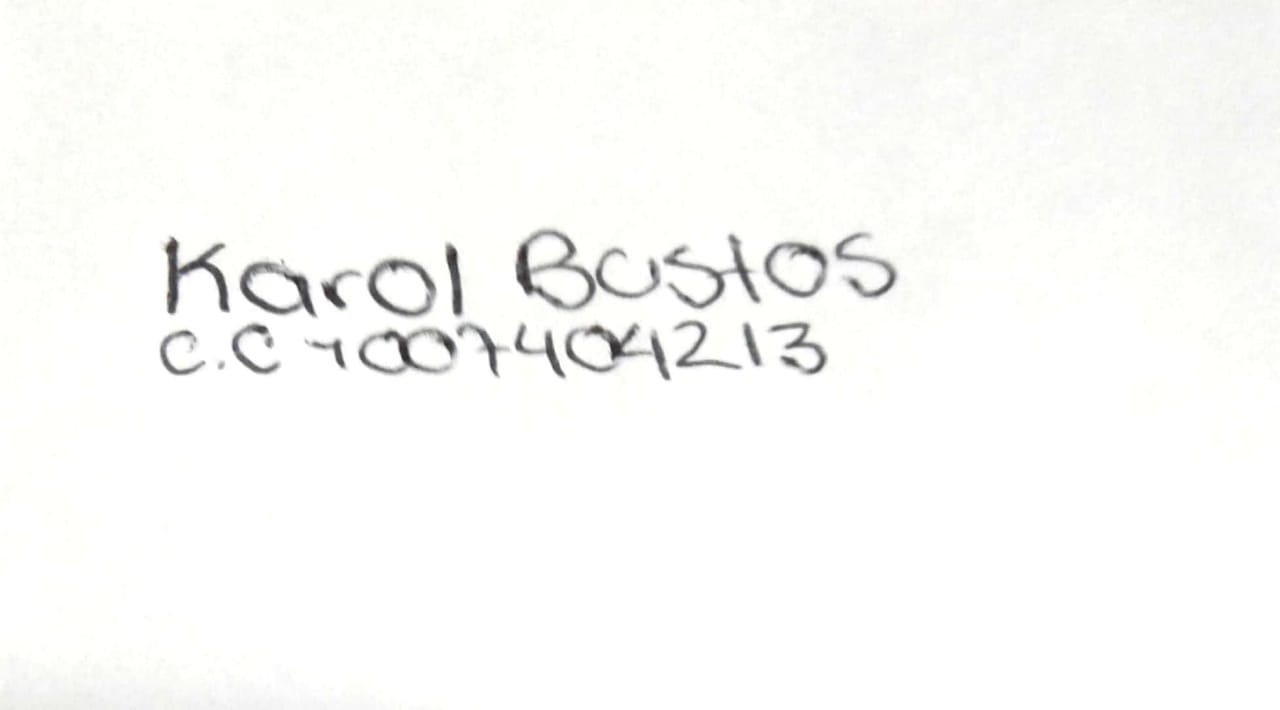 Karol Bustos
C.C 1007404213